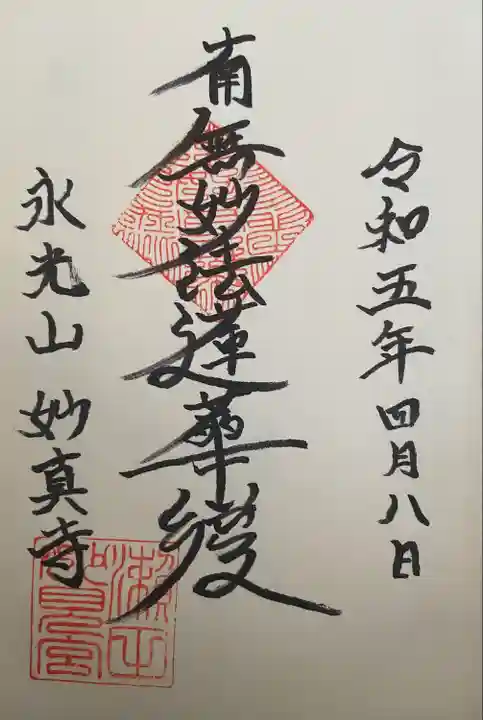 令和五年四月八日
南無妙法蓮華経
永光山 妙真寺